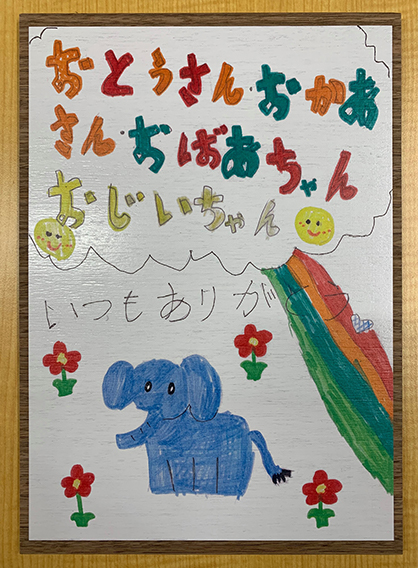 おとうさん・おかあ
さん・おばあちゃん
おじいちゃん
いつもありがとう